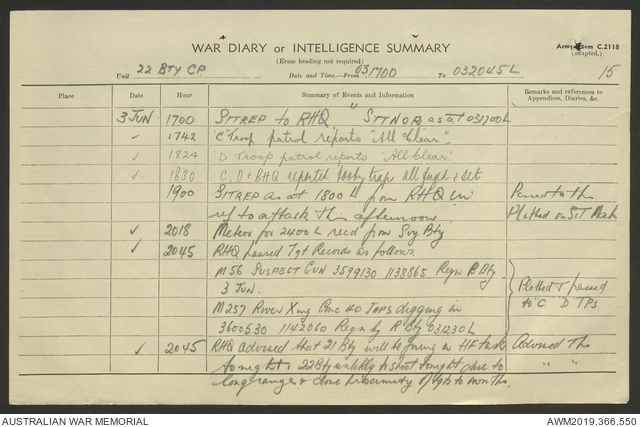 WAR DIARY or INTELLIGENCE SUMMARY
(Erase heading not required)
Army Form C.2118
(adapted.)
Unit 22 BTY CP Date and Time—From 031700 To 032045L 15
Place Date Hour Summary of Events and Information Remarks and references to Appendices, Diaries, &c.
3 JUN 1700 SITREP to RHQ " STTNOR as at 031700L
✓ 1742 "C" Troop patrol reports "All Clear".
✓ 1824 D Troop patrol reports "All Clear"
✓ 1830 C, D & RHQ reported booby traps all set
1900 SITREP as at 1800 L from RHQ in Passed to the
ref to attack this afternoon. Plotted on SIT
✓ 2018 Meteor for 2400L recd from Svy Bty
✓ 2045 RHQ passed Tgt Records as follows.
M56 SUSPECT GUN 3599130 1138865 Regn B Bty
3 JUN. Plotted & passed
M257 River Xing One 40 JAPS digging in to "C" D TPs
3600530 1142060 Regn by R Bty 031230L
✓ 2045 RHQ advised that 21 Bty will be firing on HF task Advised Tps
tonight. 22 Bty unlikely to shoot tonight due to " "
long ranges & close proximity of tgts to
AUSTRALIAN WAR MEMORIAL AWM2019.366.550